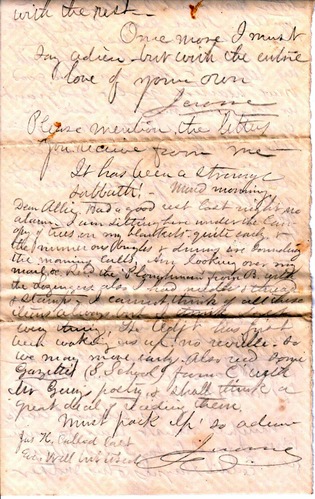 with the rest —
Once more I must
say adieu but with the entire
love of your own
Jerome
Please mention the letters
you receive from me —
It has been a strange
Sabbath! — Mond morning
Dear Allie. Had a good rest last night no
alarm. I am sitting here under the
of trees on my quite early
the numerous bugles & drums are sounding
the morning calls, Am looking over my
mail, Recd the Ploughman from B. with
the also had needles & thread
& stamps, I cannot think of all these
always
every time. The Adjt has just
been waking us up. no reveille. So
we may move early. Also recd some
Gazettes (S. School) from C with
Mr poetry. I shall think a
great deal reading them.
Must pack up! so adieu
Jas H. Called last
Eve. Well
Jerome